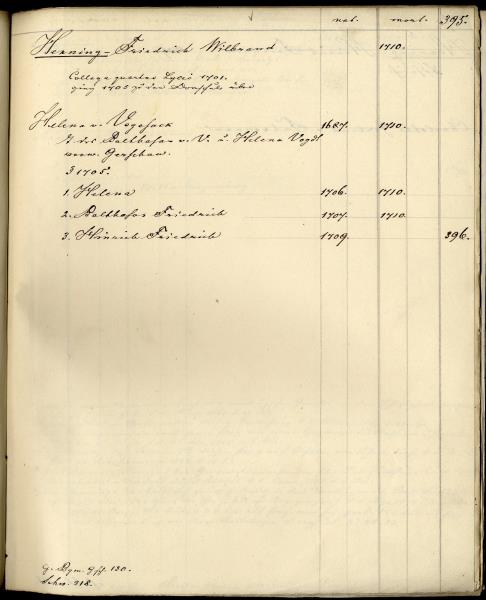 nat. mort. 395.
Henning- Friedrich Wilbrand 1710.
Collega quartus Lycei 1701.
ging 1705 zu der Domschule über
Helena v. Vegesack 1687. 1710.
T. des Balthasar v. V. u. Helena Vogdt
verw. Gerschau.
3 1705.
1. Helena 1706. 1710.
2. Balthasar Friedrich 1707. 1710.
3. Hinrich Friedrich 1709. 396.
G. Gym. 130.
Schr. 218.